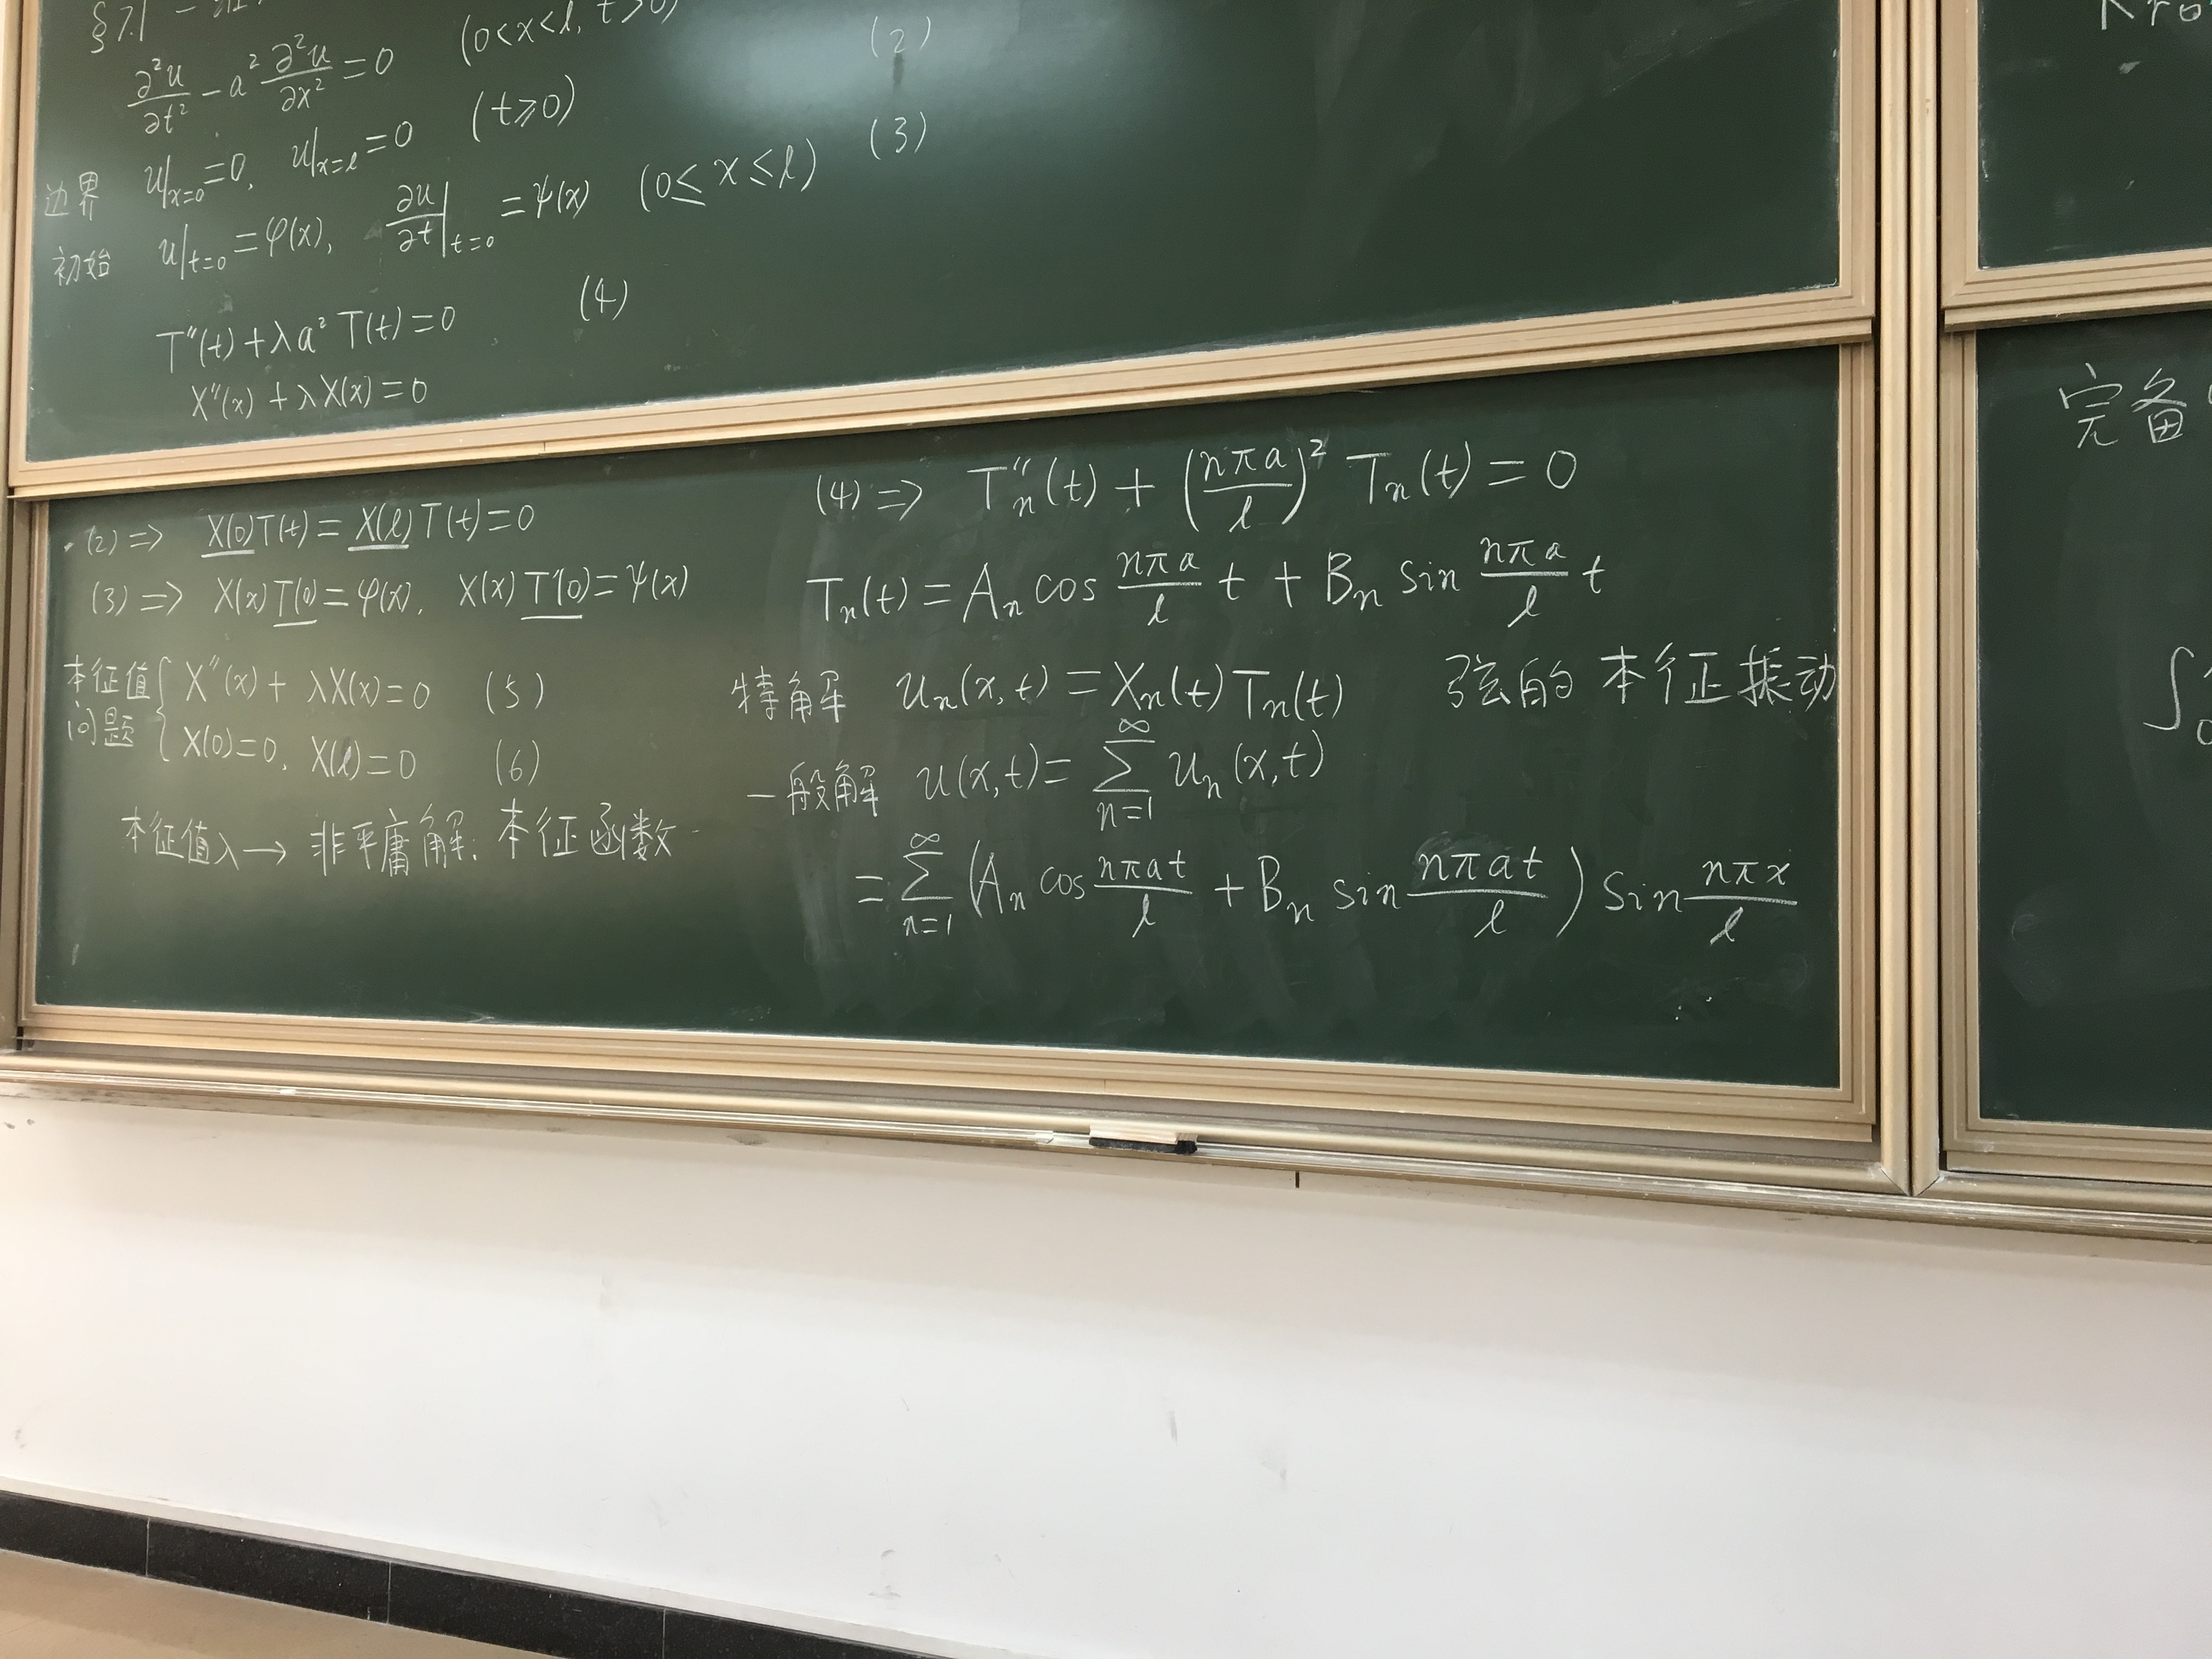 §7.1 一维
∂²u/∂t² − a² ∂²u/∂x² = 0 (0<x<l, t>0)
边界 u|x=0 = 0, u|x=l = 0 (t≥0) (2)
初始 u|t=0 = φ(x), ∂u/∂t|t=0 = ψ(x) (0≤x≤l) (3)
T″(t) + λa² T(t) = 0 (4)
X″(x) + λX(x) = 0
(2) ⇒ X(0)T(t) = X(l)T(t) = 0
(3) ⇒ X(x)T(0) = φ(x), X(x)T′(0) = ψ(x)
本征值问题 { X″(x) + λX(x) = 0 (5)
X(0) = 0, X(l) = 0 (6)
本征值λ → 非平庸解: 本征函数
(4) ⇒ Tₙ″(t) + (nπa/l)² Tₙ(t) = 0
Tₙ(t) = Aₙ cos nπa/l t + Bₙ sin nπa/l t
特解 uₙ(x,t) = Xₙ(t)Tₙ(t) 弦的本征振动
一般解 u(x,t) = ∑n=1∞ uₙ(x,t)
= ∑n=1∞ (Aₙ cos nπat/l + Bₙ sin nπat/l) sin nπx/l
完备